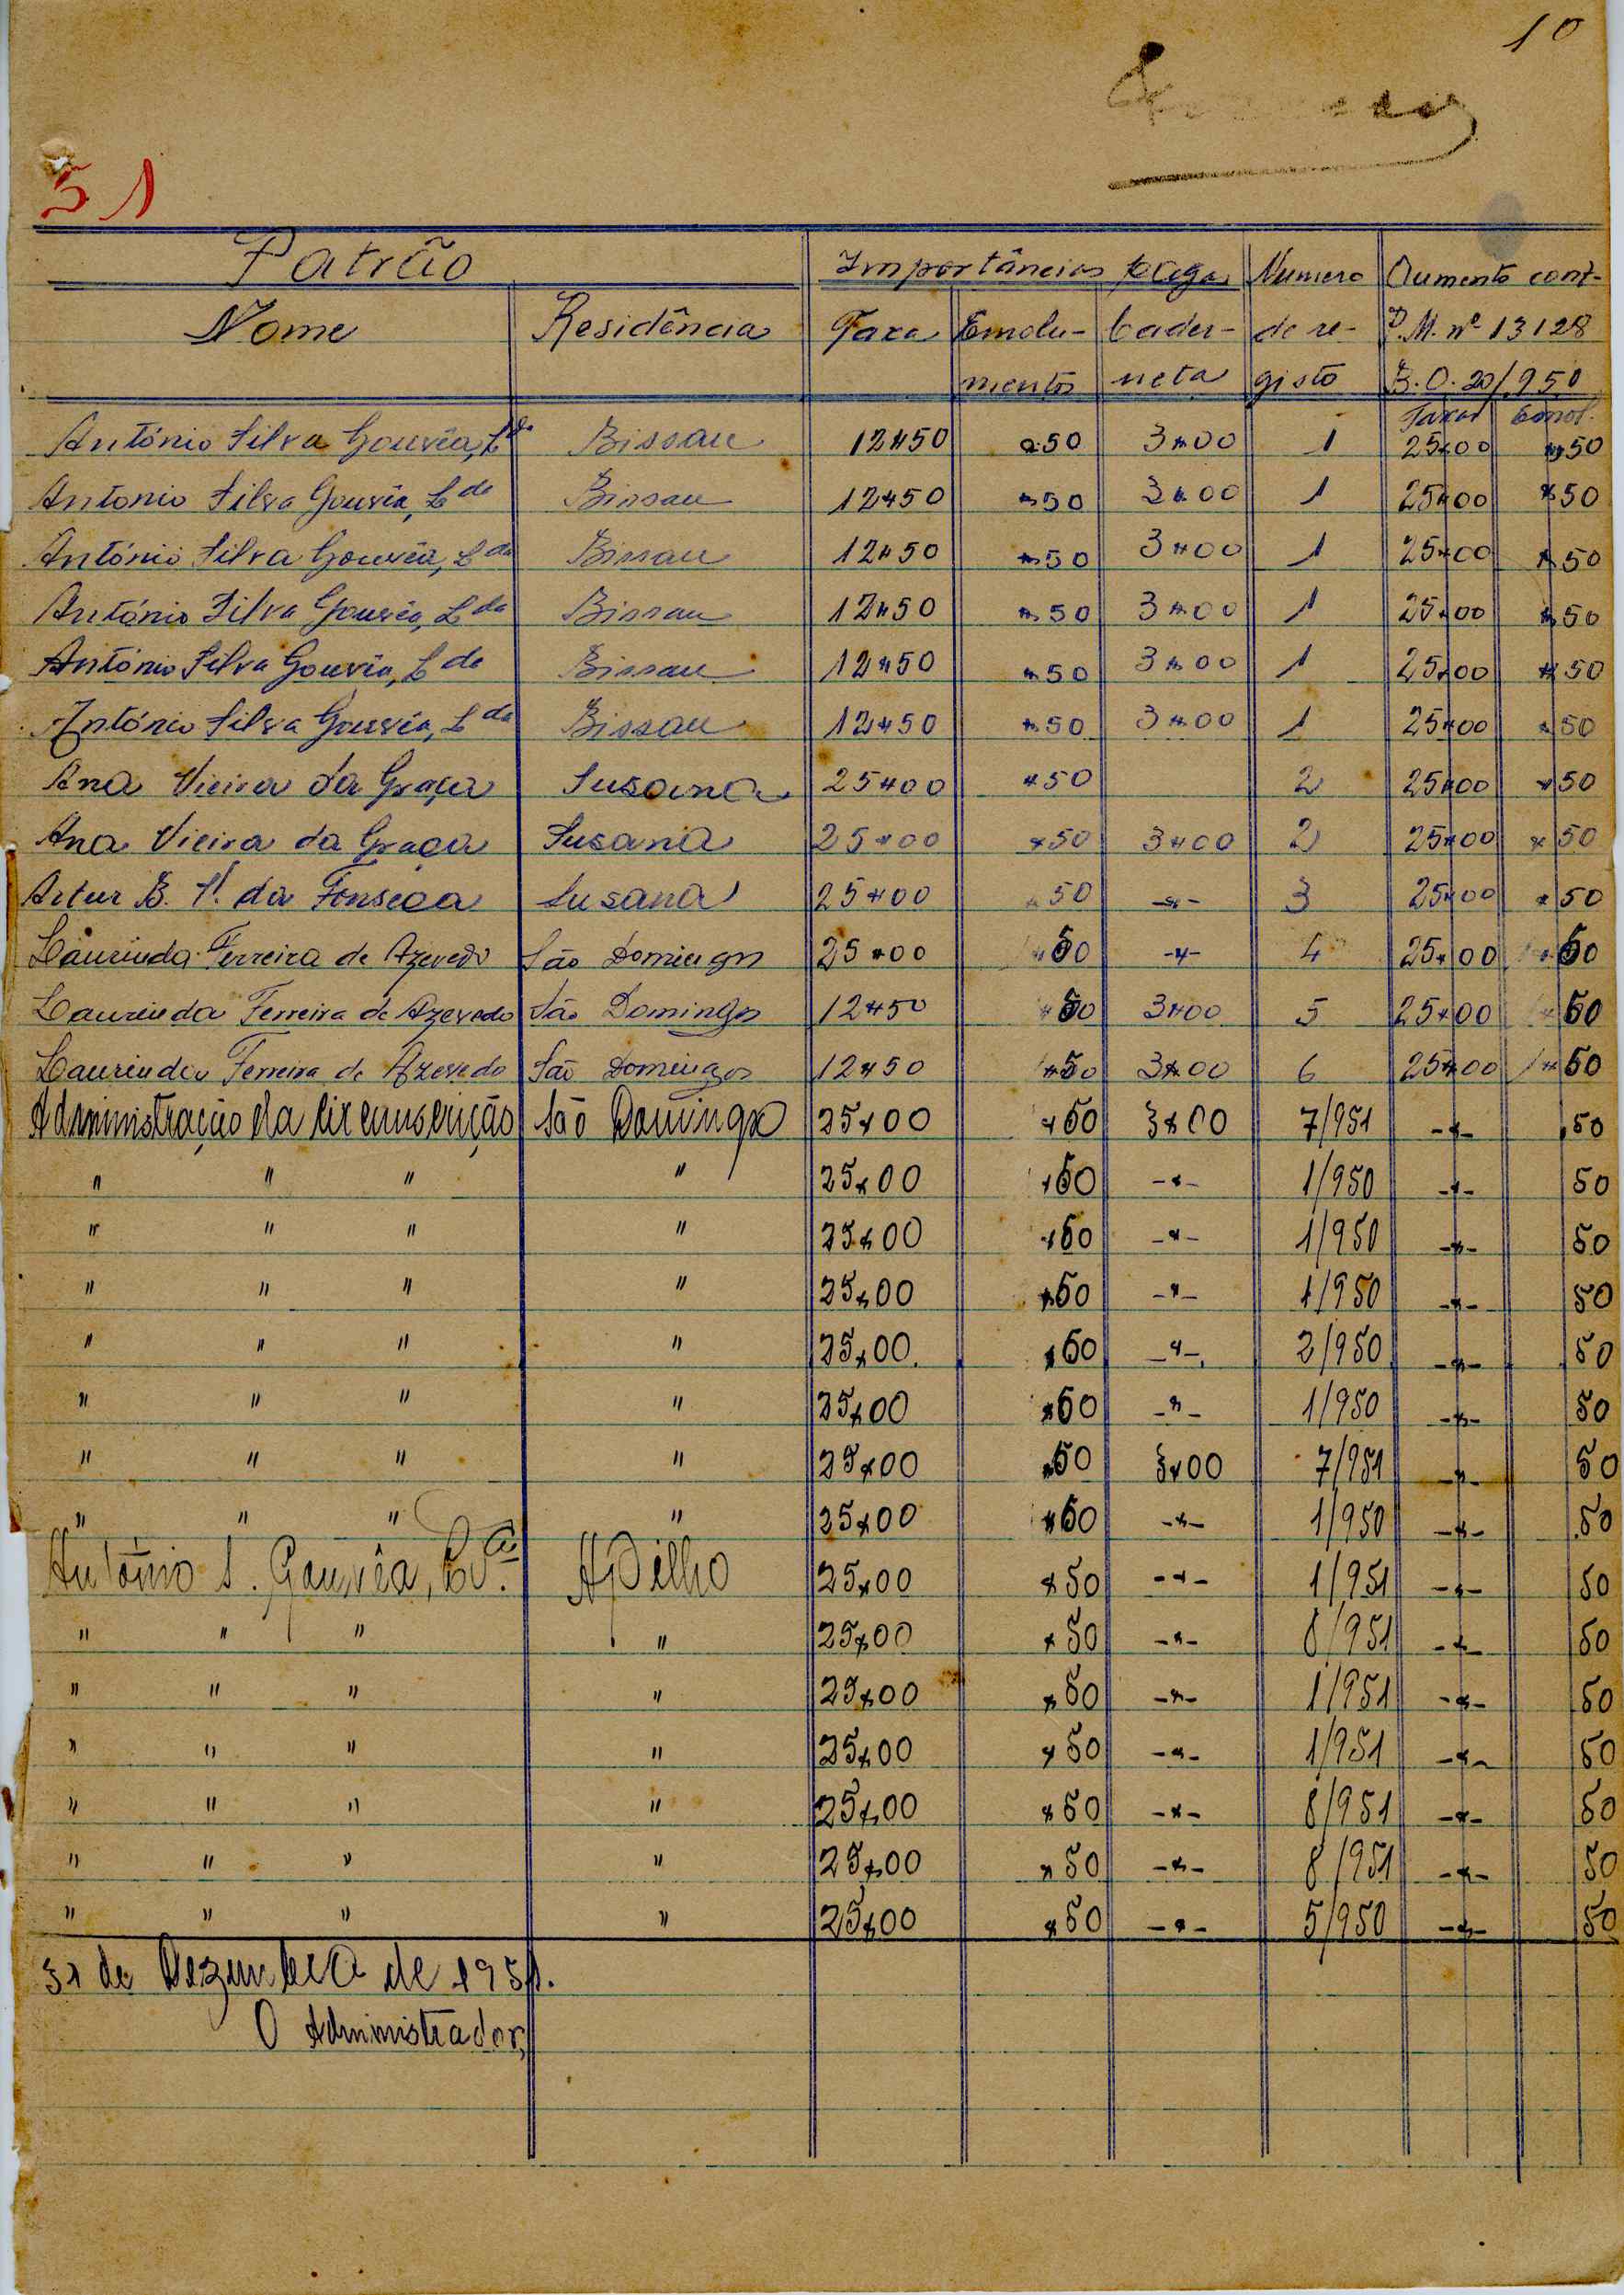 10
51
Patrão Importâncias pagas Numero Aumento conf.
Nome Residência Taxa Emolu- Cader- de re- D.M. nº 13128
mentos neta gisto B.O. 20/950
Taxas Emol.
António Silva Gouvêa, Lda Bissau 12$50 $50 3$00 1 25$00 $50
Antonio Silva Gouvêa, Lda Bissau 12$50 $50 3$00 1 25$00 $50
António Silva Gouvêa, Lda Bissau 12$50 $50 3$00 1 25$00 $50
António Silva Gouvêa, Lda Bissau 12$50 $50 3$00 1 25$00 $50
António Silva Gouvêa, Lda Bissau 12$50 $50 3$00 1 25$00 $50
António Silva Gouvêa, Lda Bissau 12$50 $50 3$00 1 25$00 $50
Ana Vieira da Graça Susana 25$00 $50 2 25$00 $50
Ana Vieira da Graça Susana 25$00 $50 3$00 2 25$00 $50
Artur B. da Fonseca Susana 25$00 $50 -$- 3 25$00 $50
Laurinda Ferreira de Azevedo São Domingos 25$00 $50 -$- 4 25$00 $50
Laurinda Ferreira de Azevedo São Domingos 12$50 $50 3$00 5 25$00 $50
Laurinda Ferreira de Azevedo São Domingos 12$50 $50 3$00 6 25$00 $50
Administração da Circunscrição São Domingos 25$00 $50 3$00 7/951 -$- $50
" " " " 25$00 $50 -$- 1/950 -$- 50
" " " " 25$00 $50 -$- 1/950 -$- 50
" " " " 25$00 $50 -$- 1/950 -$- 50
" " " " 25$00 $50 -$- 2/950 -$- 50
" " " " 25$00 $50 -$- 1/950 -$- 50
" " " " 25$00 $50 3$00 7/951 -$- 50
" " " " 25$00 $50 -$- 1/950 -$- 50
António S. Gouvêa, 25$00 $50 -$- 1/951 -$- 50
" " " " 25$00 $50 -$- 8/951 -$- 50
" " " " 25$00 $50 -$- 1/951 -$- 50
" " " " 25$00 $50 -$- 1/951 -$- 50
" " " " 25$00 $50 -$- 8/951 -$- 50
" " " " 25$00 $50 -$- 8/951 -$- 50
" " " " 25$00 $50 -$- 5/950 -$- 50
31 de Dezembro de 1951.
O Administrador,